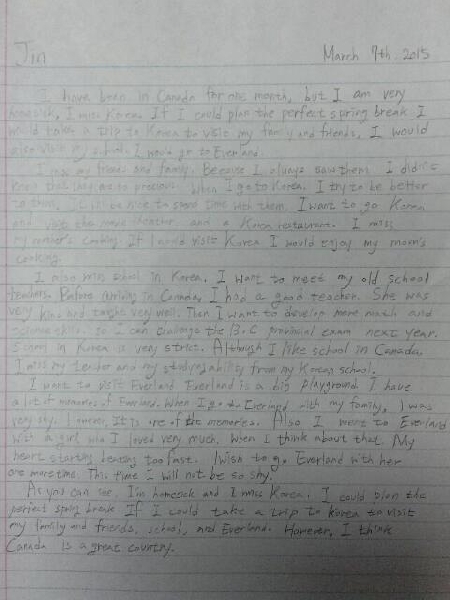 Jin March 7th 2015
I have been in Canada for one month, but I am very
homesick, I miss Korea. If I could plan the perfect spring break I
would take a trip to Korea to visit my family and friends, I would
also visit my school, I would go to Everland.
I miss my friends and family. Because I always saw them I didn't
know they are so precious. When I go to Korea, I try to be better
to them. It will be nice to spend time with them. I want to go Korea
and visit the movie theater and a Korea restaurant. I miss
my mother's cooking. If I could visit Korea I would enjoy my mom's
cooking.
I also miss school in Korea. I want to meet my old school
teachers. Before arriving in Canada, I had a good teacher. She was
very kind, and taught very well. Then I want to develop more math and
so I can challenge the B.C provincial exam next year.
in Korea is very strict. Although I like school in Canada,
I miss my teacher and my studying ability from my Korean school.
I want to visit Everland Everland is a big playground I have
a lot of memories of Everland. When I go to Everland with my family, I was
very It is one of the memories. Also I went to Everland
with a girl who I loved very much. When I think about that My
heart starting beating too fast. I wish to go Everland with her
one more time. This time I will not be so shy.
As you can see, I'm homesick and I miss Korea. I could plan the
perfect spring break If I would take a trip to Korea to visit
my family and friends, school, and Everland. However, I think
Canada is a great country.